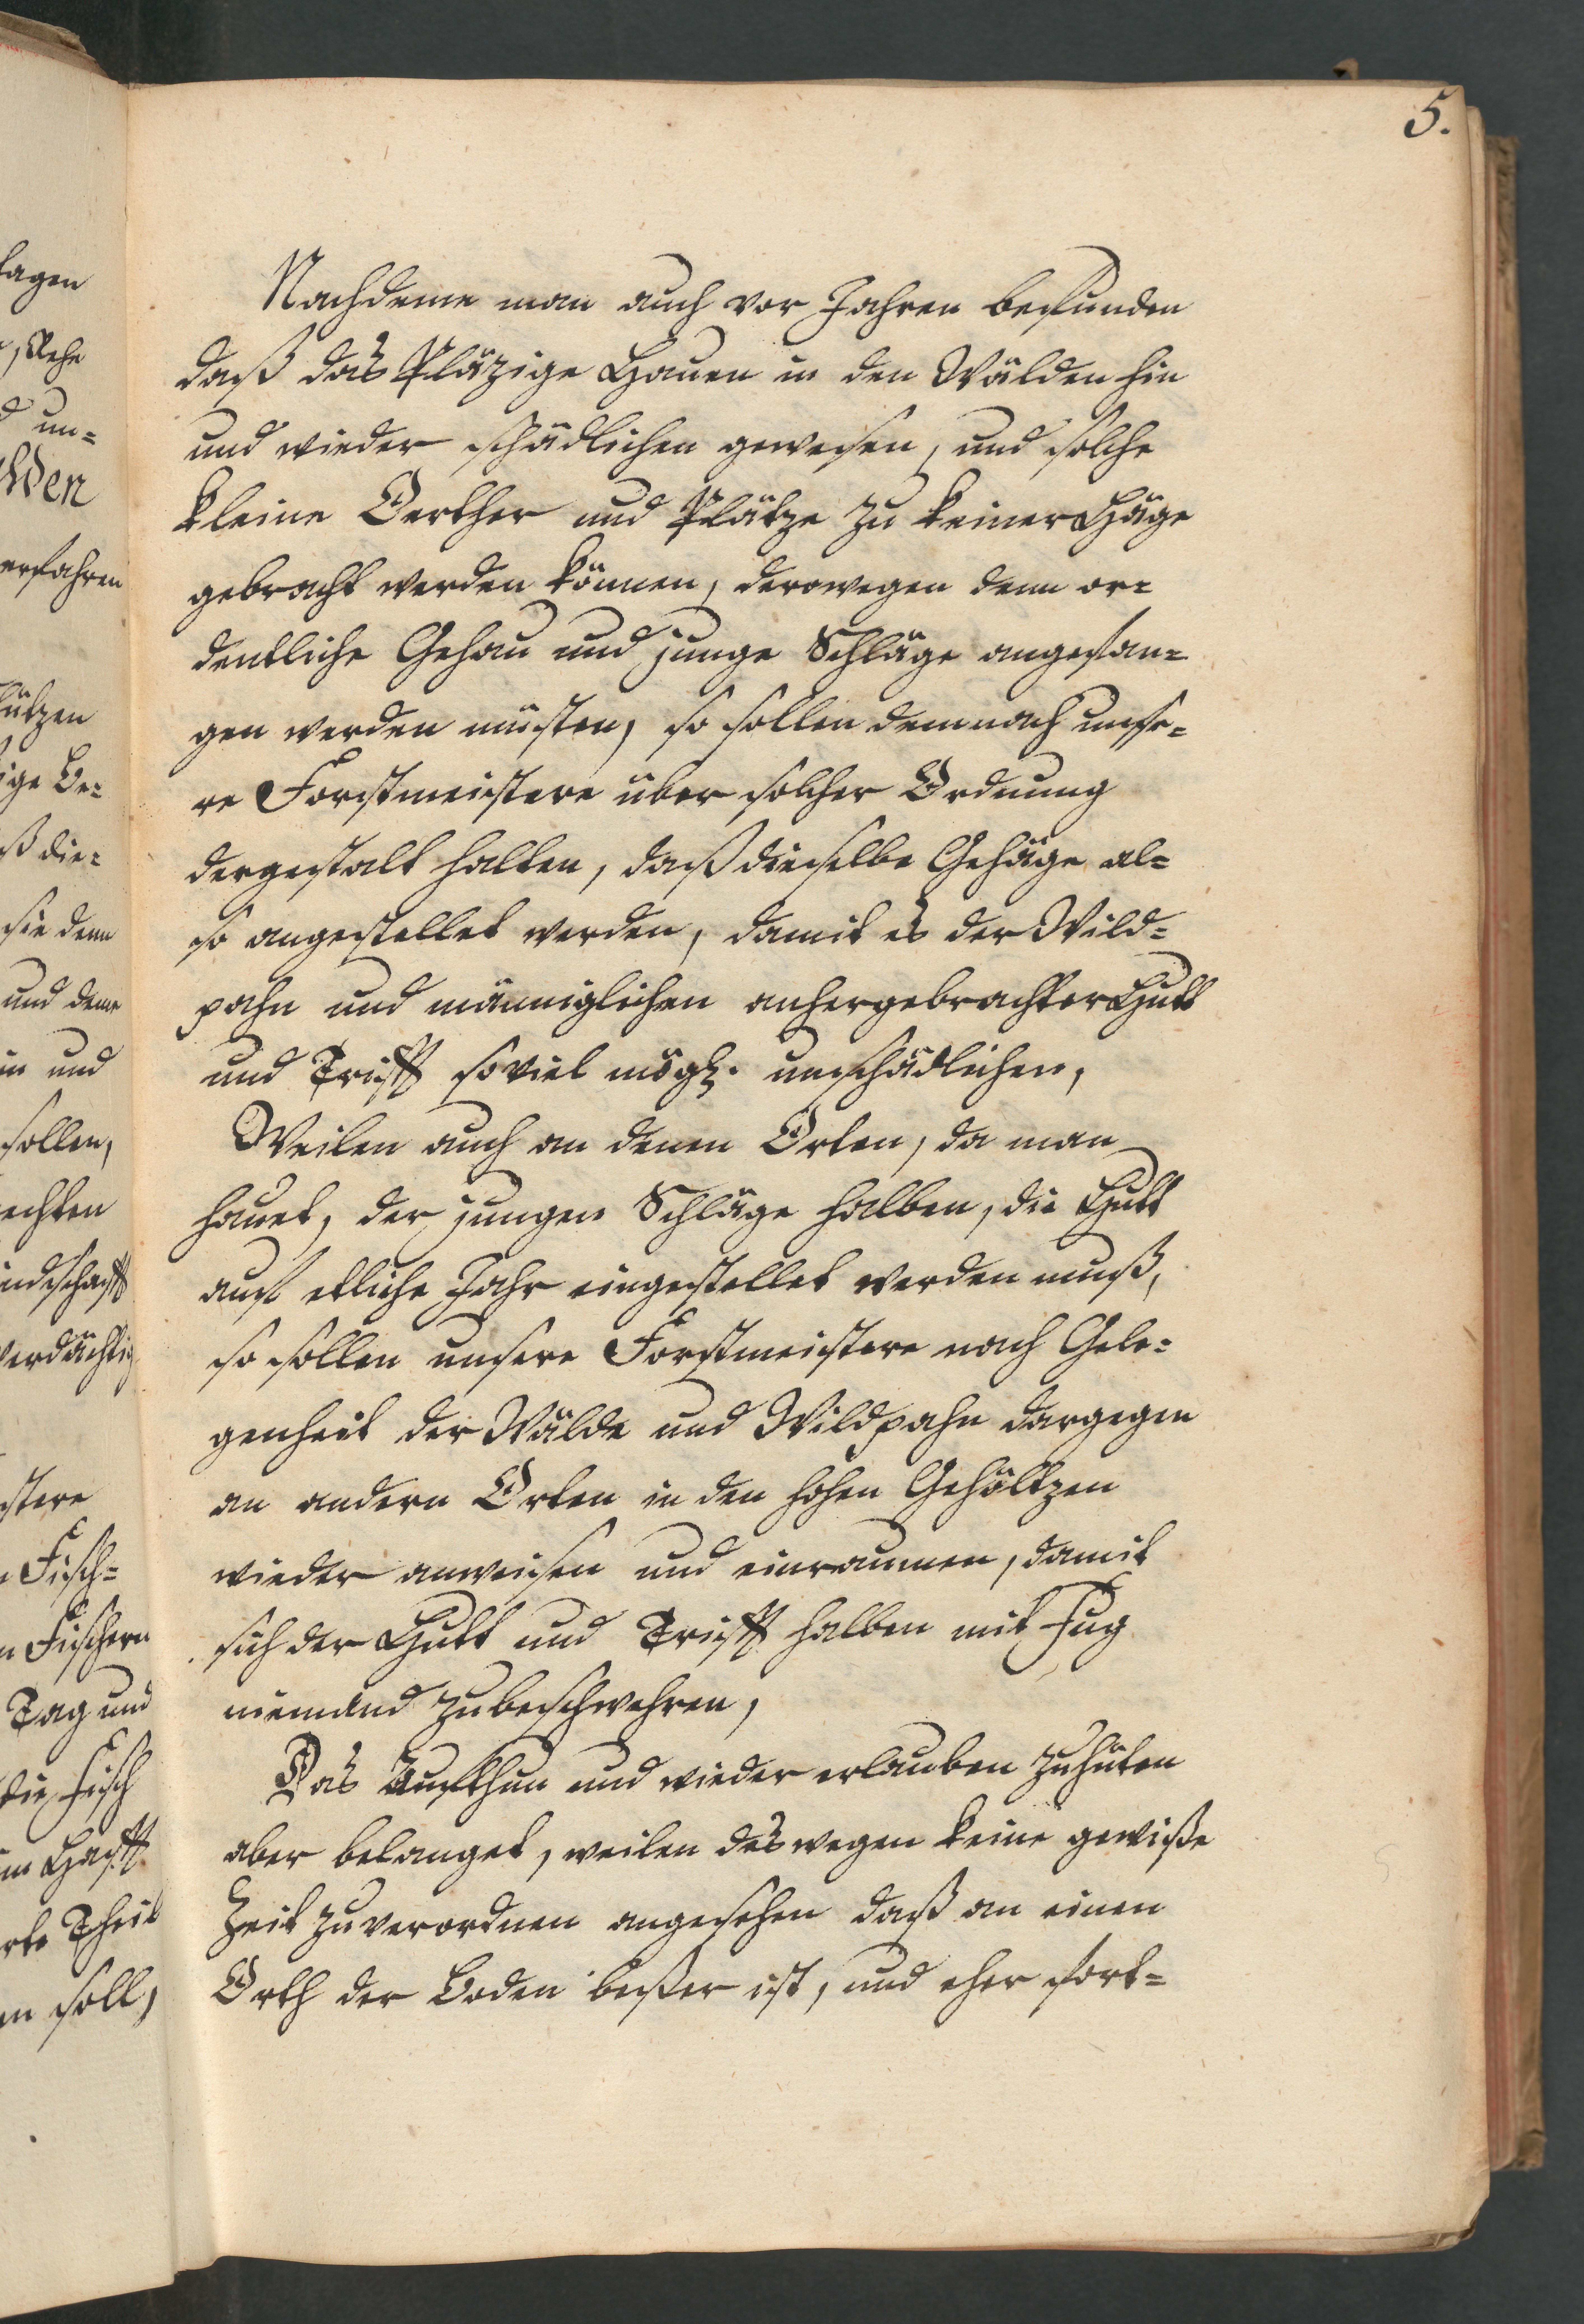 5.
Nachdeme man auch vor Jahren befunden
daß das Pläzige Hauen in den Wälden hin
und wieder schädlichen gewesen, und solche
kleine Oerther und Plätze zu keiner Häge
gebracht werden können, derowegen denn or=
dentliche Gehau und junge Schläge angefan=
gen werden müsten, so sollen demnach unse=
re Forstmeistere über solcher Ordnung
dergestalt halten, daß dieselbe Gehäge al=
so angestellet werden, damit es der Wild=
pahn und männiglichen anhergebrachter Hutt
und Trifft soviel mögl. unschädlichen,
Weilen auch an denen Orten, da man
hauet, der jungen Schläge halben, die Hutt
auf etliche Jahr eingestellet werden muß,
so sollen unsere Forstmeistere nach Gele=
genheit der Wälde und Wildpahn dargegen
an andern Orten in den hohen Gehöltzen
wieder anweisen und einraumen, damit
sich der Hutt und Trifft halben mit Fug
niemand zubeschwehren,
Das Aufthun und wieder erlauben zuhüten
aber belanget, weilen deswegen keine gewiße
Zeit zuverordnen angesehen daß an einen
Orth der Boden beßer ist, und eher fort=
lagen
, Rehe
un=
erfahren
ützen
ige Be=
ß die=
sie denn
und deme
in und
sollen,
echten
indschafft
verdächtig
stere
Fisch=
Fischern
Tag und
die Fisch
im Hafft
rte Theil
en soll,